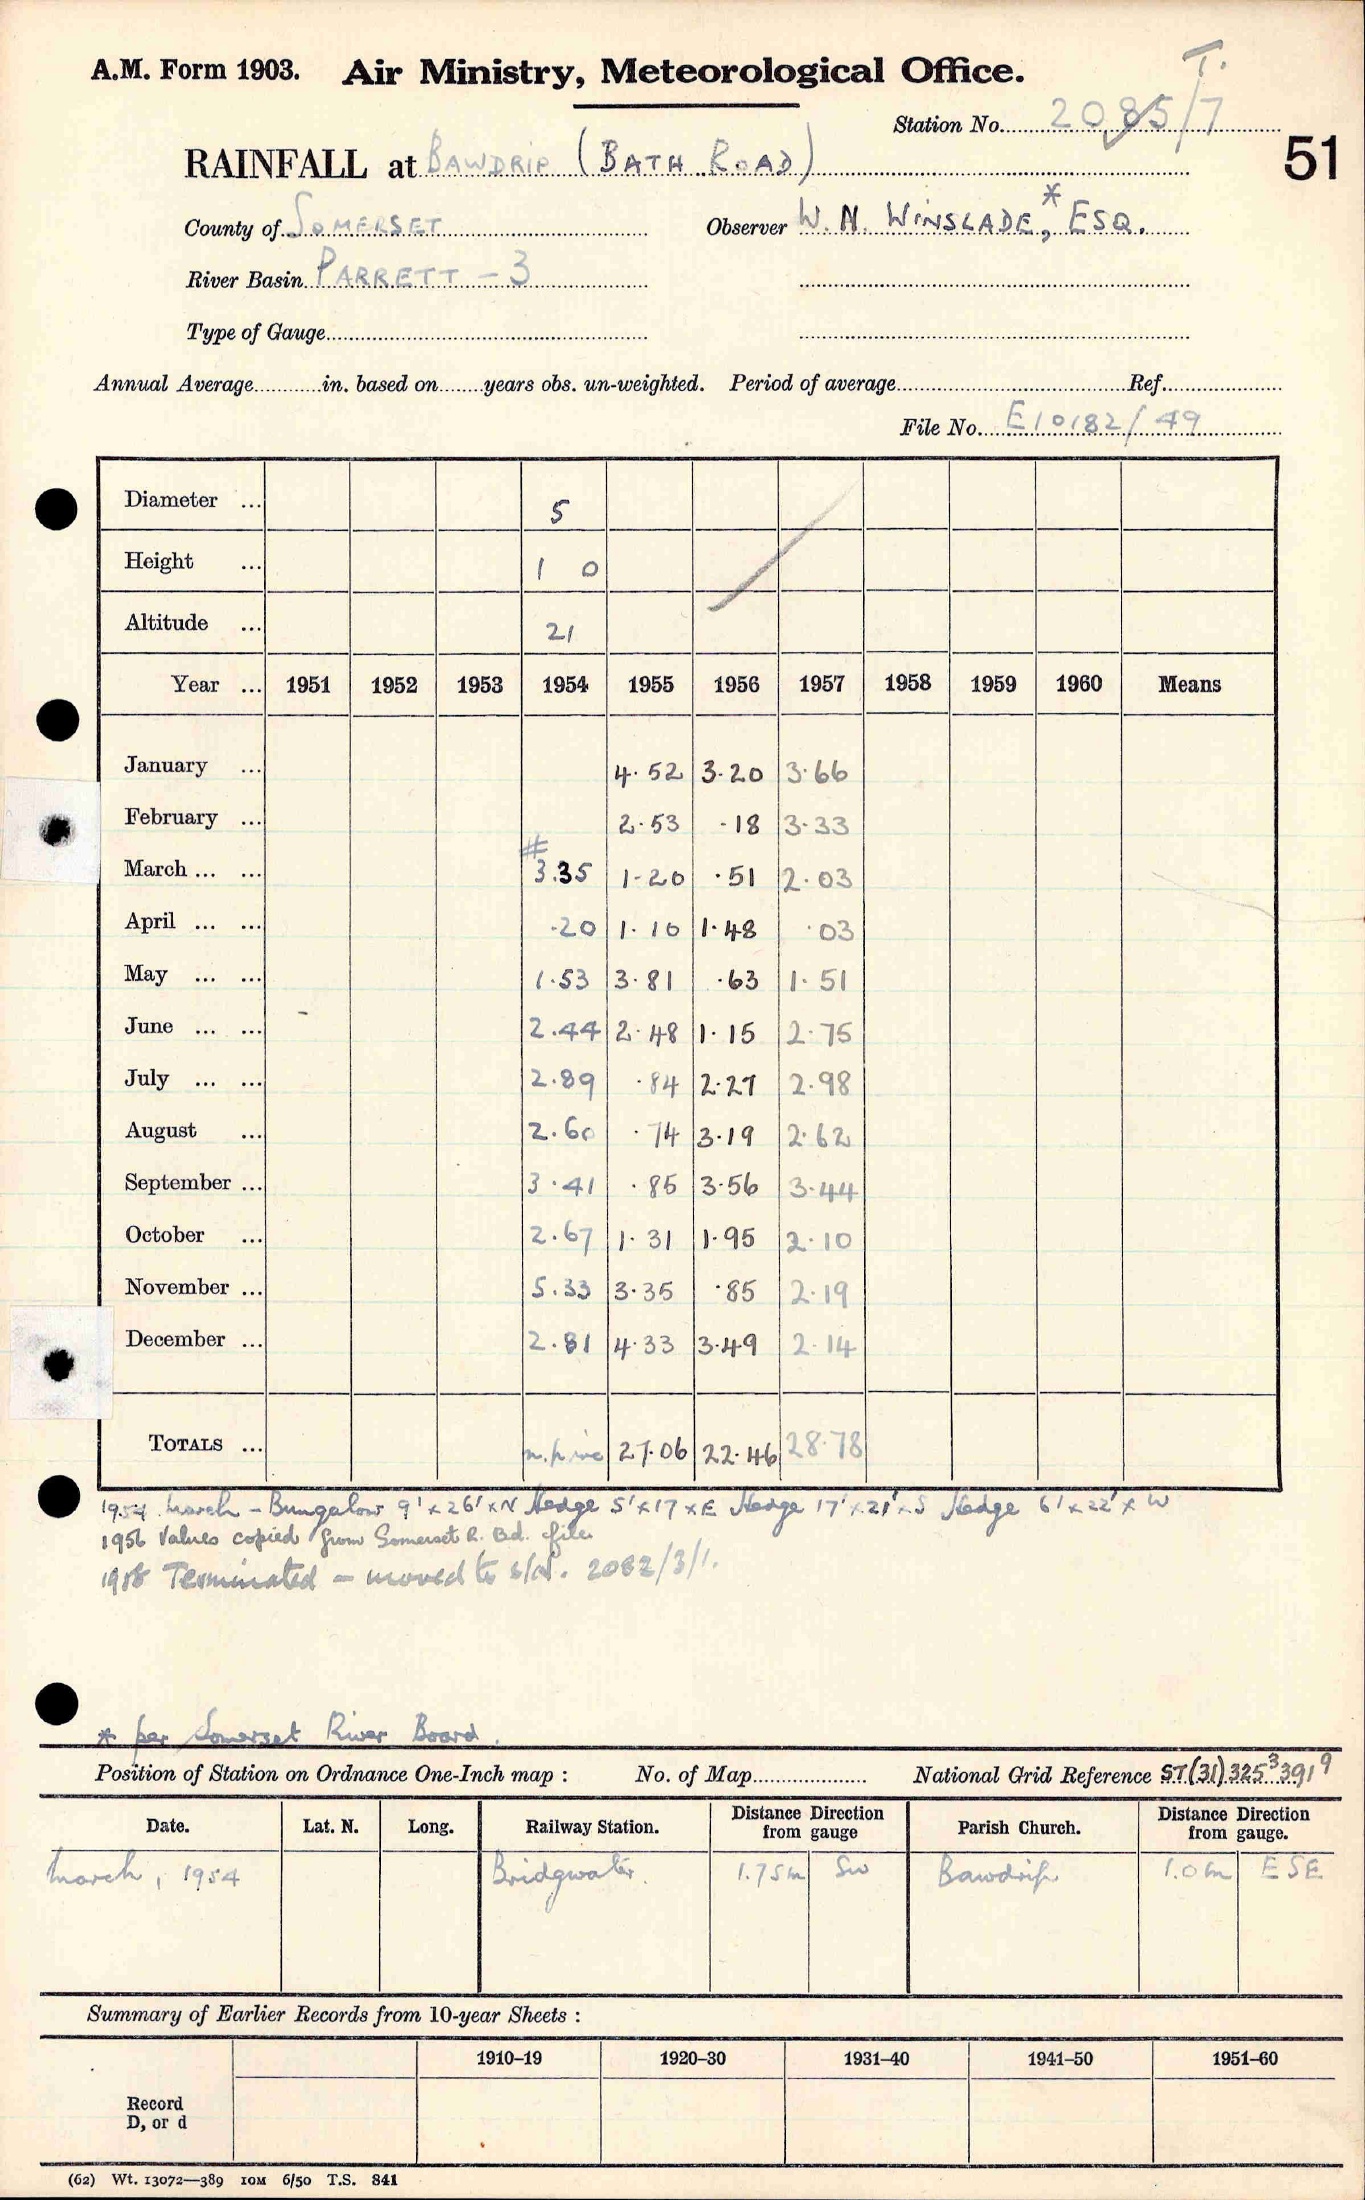 A.M. Form 1903. Air Ministry, Meteorological Office. T.
Station No. 2085/7
51
RAINFALL at BAWDRIP (BATH ROAD)
County of SOMERSET Observer W. H. WINSLADE,* ESQ.
River Basin PARRETT - 3
Type of Gauge
Annual Average in. based on years obs. un-weighted. Period of average Ref.
File No. E10182/49
Diameter ... 5
Height ... 1 0
Altitude ... 21
Year ... 1951 1952 1953 1954 1955 1956 1957 1958 1959 1960 Means
January ... 4.52 3.20 3.66
February ... 2.53 .18 3.33
#
March ... ... 3.35 1.20 .51 2.03
April ... ... .20 1.10 1.48 .03
May ... ... 1.53 3.81 .63 1.51
June ... ... 2.44 2.48 1.15 2.75
July ... ... 2.89 .84 2.27 2.98
August ... 2.60 .74 3.19 2.62
September ... 3.41 .85 3.56 3.44
October ... 2.67 1.31 1.95 2.10
November ... 5.33 3.35 .85 2.19
December ... 2.81 4.33 3.49 2.14
TOTALS ... 27.06 22.46 28.78
1954 March - Bungalow 9' x 26' x N Hedge 5' x 17 x E Hedge 17' x 21' x S Hedge 6' x 22' x W
1956 Values copied from Somerset R. Bd. file
1958 Terminated - moved to s/N. 2082/3/1.
* per Somerset River Board.
Position of Station on Ordnance One-Inch map : No. of Map National Grid Reference ST(31)325³391⁹
Date. Lat. N. Long. Railway Station. Distance Direction from gauge Parish Church. Distance Direction from gauge.
March, 1954 Bridgwater. 1.75m SW Bawdrip 1.0m ESE
Summary of Earlier Records from 10-year Sheets :
1910–19 1920–30 1931–40 1941–50 1951–60
Record
D, or d
(62) Wt. 13072—389 10M 6/50 T.S. 841